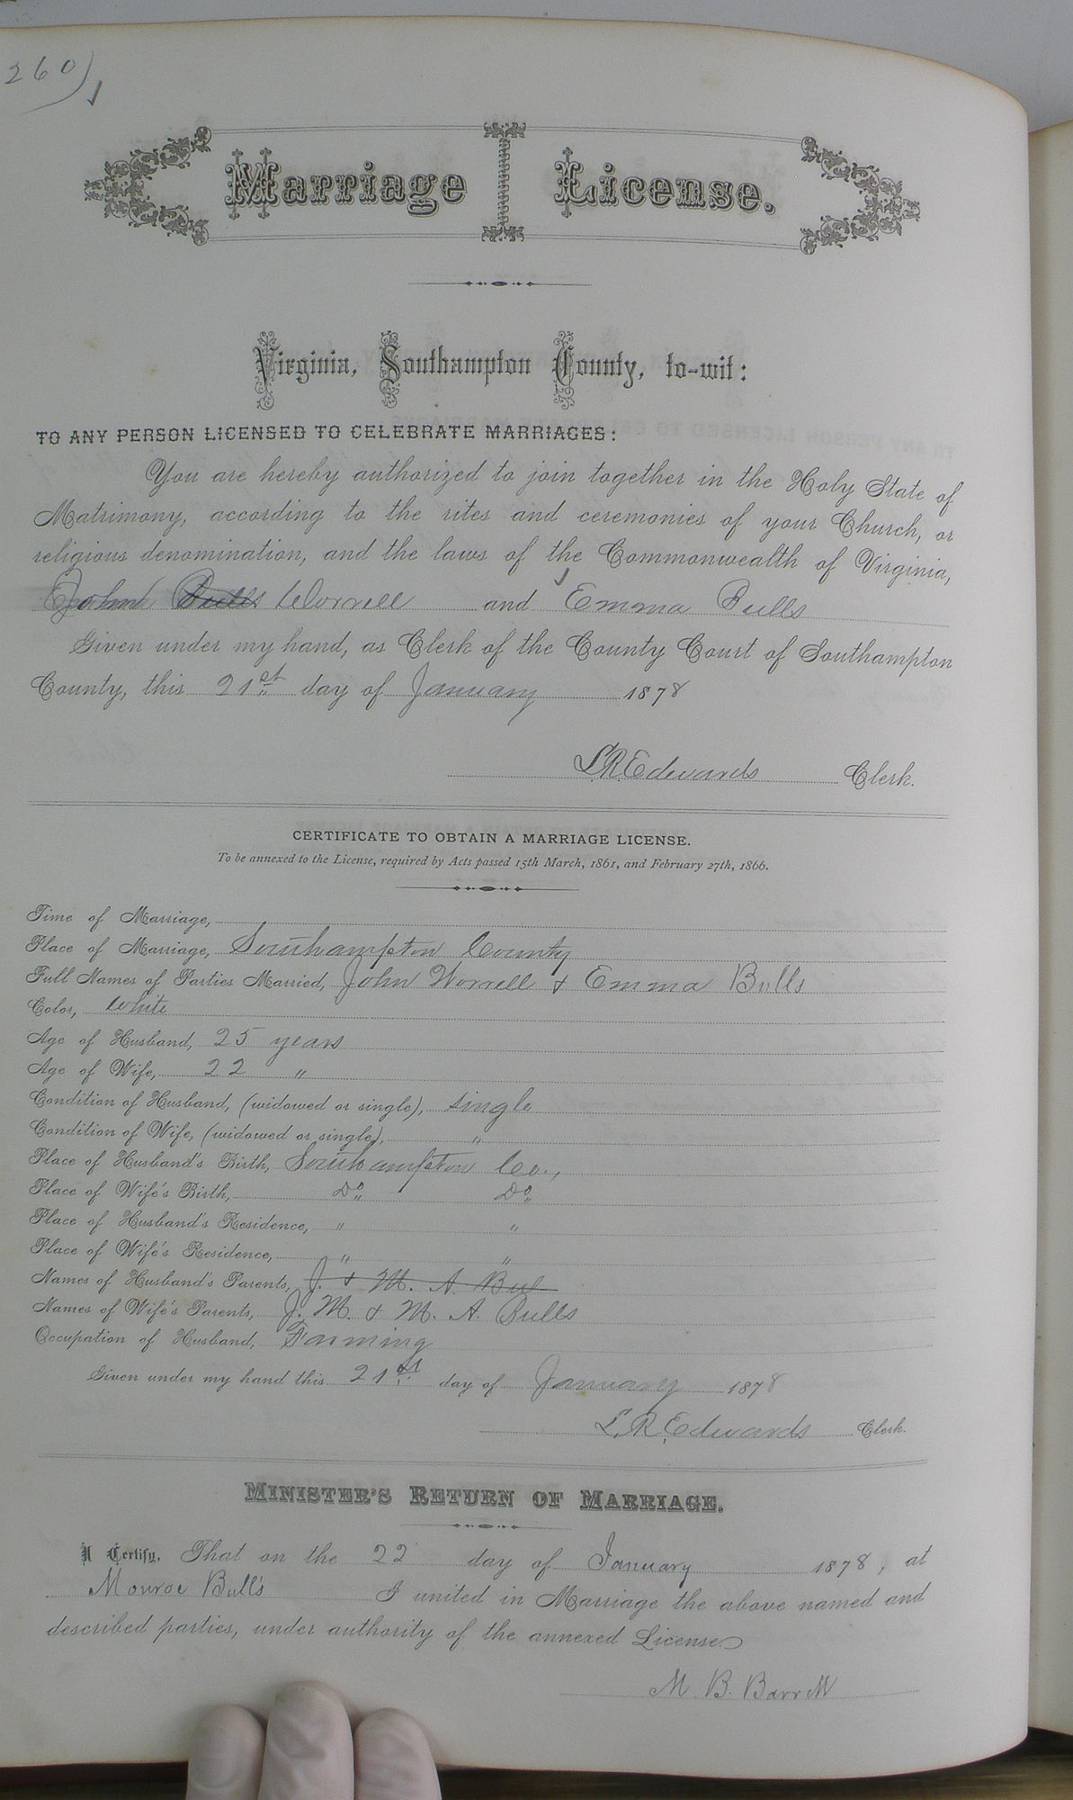 260)
Marriage License.
Virginia, Southampton County, to-wit:
TO ANY PERSON LICENSED TO CELEBRATE MARRIAGES:
You are hereby authorized to join together in the Holy State of
Matrimony, according to the rites and ceremonies of your Church, or
religious denomination, and the laws of the Commonwealth of Virginia,
John Bulls Worrell and Emma Bulls
Given under my hand, as Clerk of the County Court of Southampton
County, this 21st day of January 1878
L. R. Edwards Clerk.
CERTIFICATE TO OBTAIN A MARRIAGE LICENSE.
To be annexed to the License, required by Acts passed 15th March, 1861, and February 27th, 1866.
Time of Marriage,
Place of Marriage, Southampton County
Full Names of Parties Married, John Worrell & Emma Bulls
Color, White
Age of Husband, 25 years
Age of Wife, 22 "
Condition of Husband, (widowed or single), single
Condition of Wife, (widowed or single), "
Place of Husband's Birth, Southampton Co.,
Place of Wife's Birth, Do Do
Place of Husband's Residence, " "
Place of Wife's Residence, " "
Names of Husband's Parents, J. & M. A. Bul
Names of Wife's Parents, J. M. & M. A. Bulls
Occupation of Husband, Farming
Given under my hand this 21st day of January 1878
L. R. Edwards Clerk.
MINISTER'S RETURN OF MARRIAGE.
I Certify, That on the 22 day of January 1878, at
Monroe Bull's I united in Marriage the above named and
described parties, under authority of the annexed License
M. B. Barrett